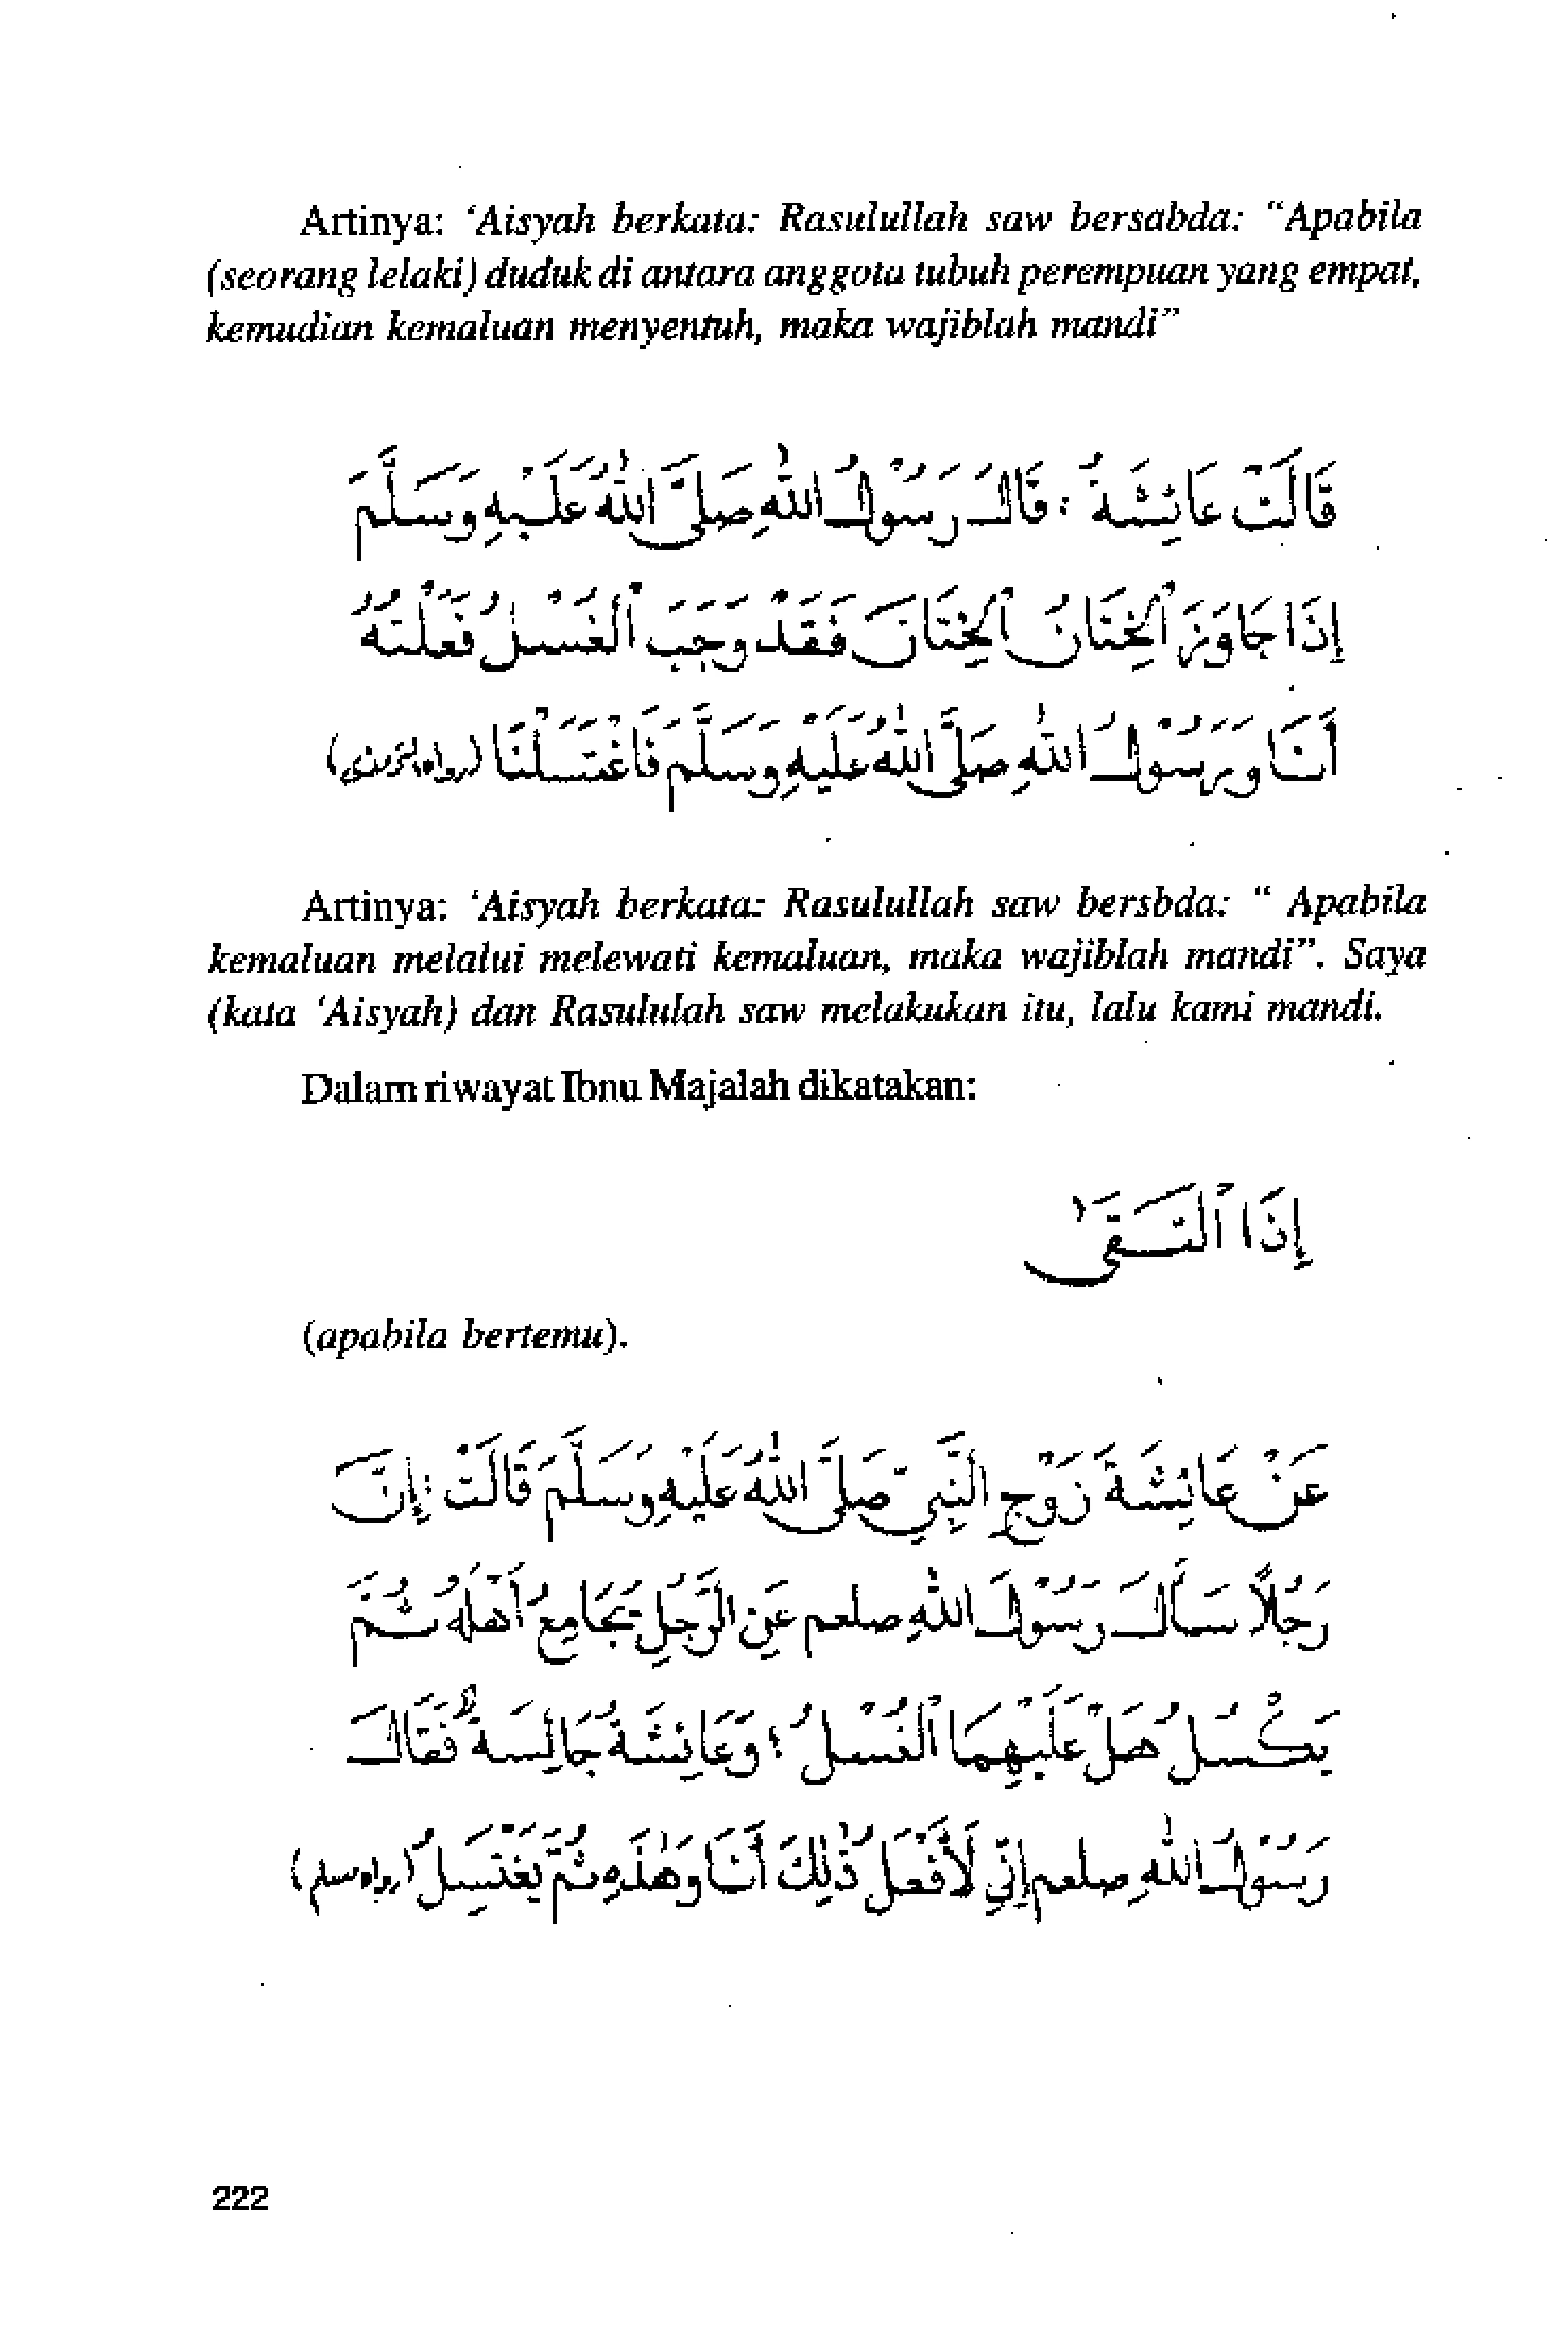 Artinya: ‘Aisyah berkata: Rasulullah saw bersabda: “Apabila
(seorang lelaki) duduk di antara anggota tubuh perempuan yang empat,
kemudian kemaluan menyentuh, maka wajiblah mandi”
قَالَتْ عَائِشَةُ : قَالَ رَسُوْلُ اللهِ صَلَّى اللهُ عَلَيْهِ وَسَلَّمَ
إِذَا جَاوَزَ ٱلْخِتَانُ ٱلْخِتَانَ فَقَدْ وَجَبَ ٱلْغَسْلُ فَعَلْتُهُ
أَنَا وَرَسُوْلُ اللهِ صَلَّى اللهُ عَلَيْهِ وَسَلَّمَ فَاغْتَسَلْنَا (رواه الترمذى)
Artinya: ‘Aisyah berkata: Rasulullah saw bersbda: “ Apabila
kemaluan melalui melewati kemaluan, maka wajiblah mandi”. Saya
(kata ‘Aisyah) dan Rasululah saw melakukan itu, lalu kami mandi.
Dalam riwayat Ibnu Majalah dikatakan:
إِذَا ٱلْتَقَى
(apabila bertemu).
عَنْ عَائِشَةَ زَوْجِ النَّبِيِّ صَلَّى اللهُ عَلَيْهِ وَسَلَّمَ قَالَتْ : إِنَّ
رَجُلًا سَأَلَ رَسُوْلَ اللهِ صلعم عَنِ الرَّجُلِ يُجَامِعُ أَهْلَهُ ثُمَّ
يَكْسُلُ هَلْ عَلَيْهِمَا ٱلْغُسْلُ ؟ وَعَائِشَةُ جَالِسَةٌ فَقَالَ
رَسُوْلُ اللهِ صلعم إِنِّي لَأَفْعَلُ ذٰلِكَ أَنَا وَهٰذِهِ ثُمَّ يَغْتَسِلُ (رواه مسلم)
222